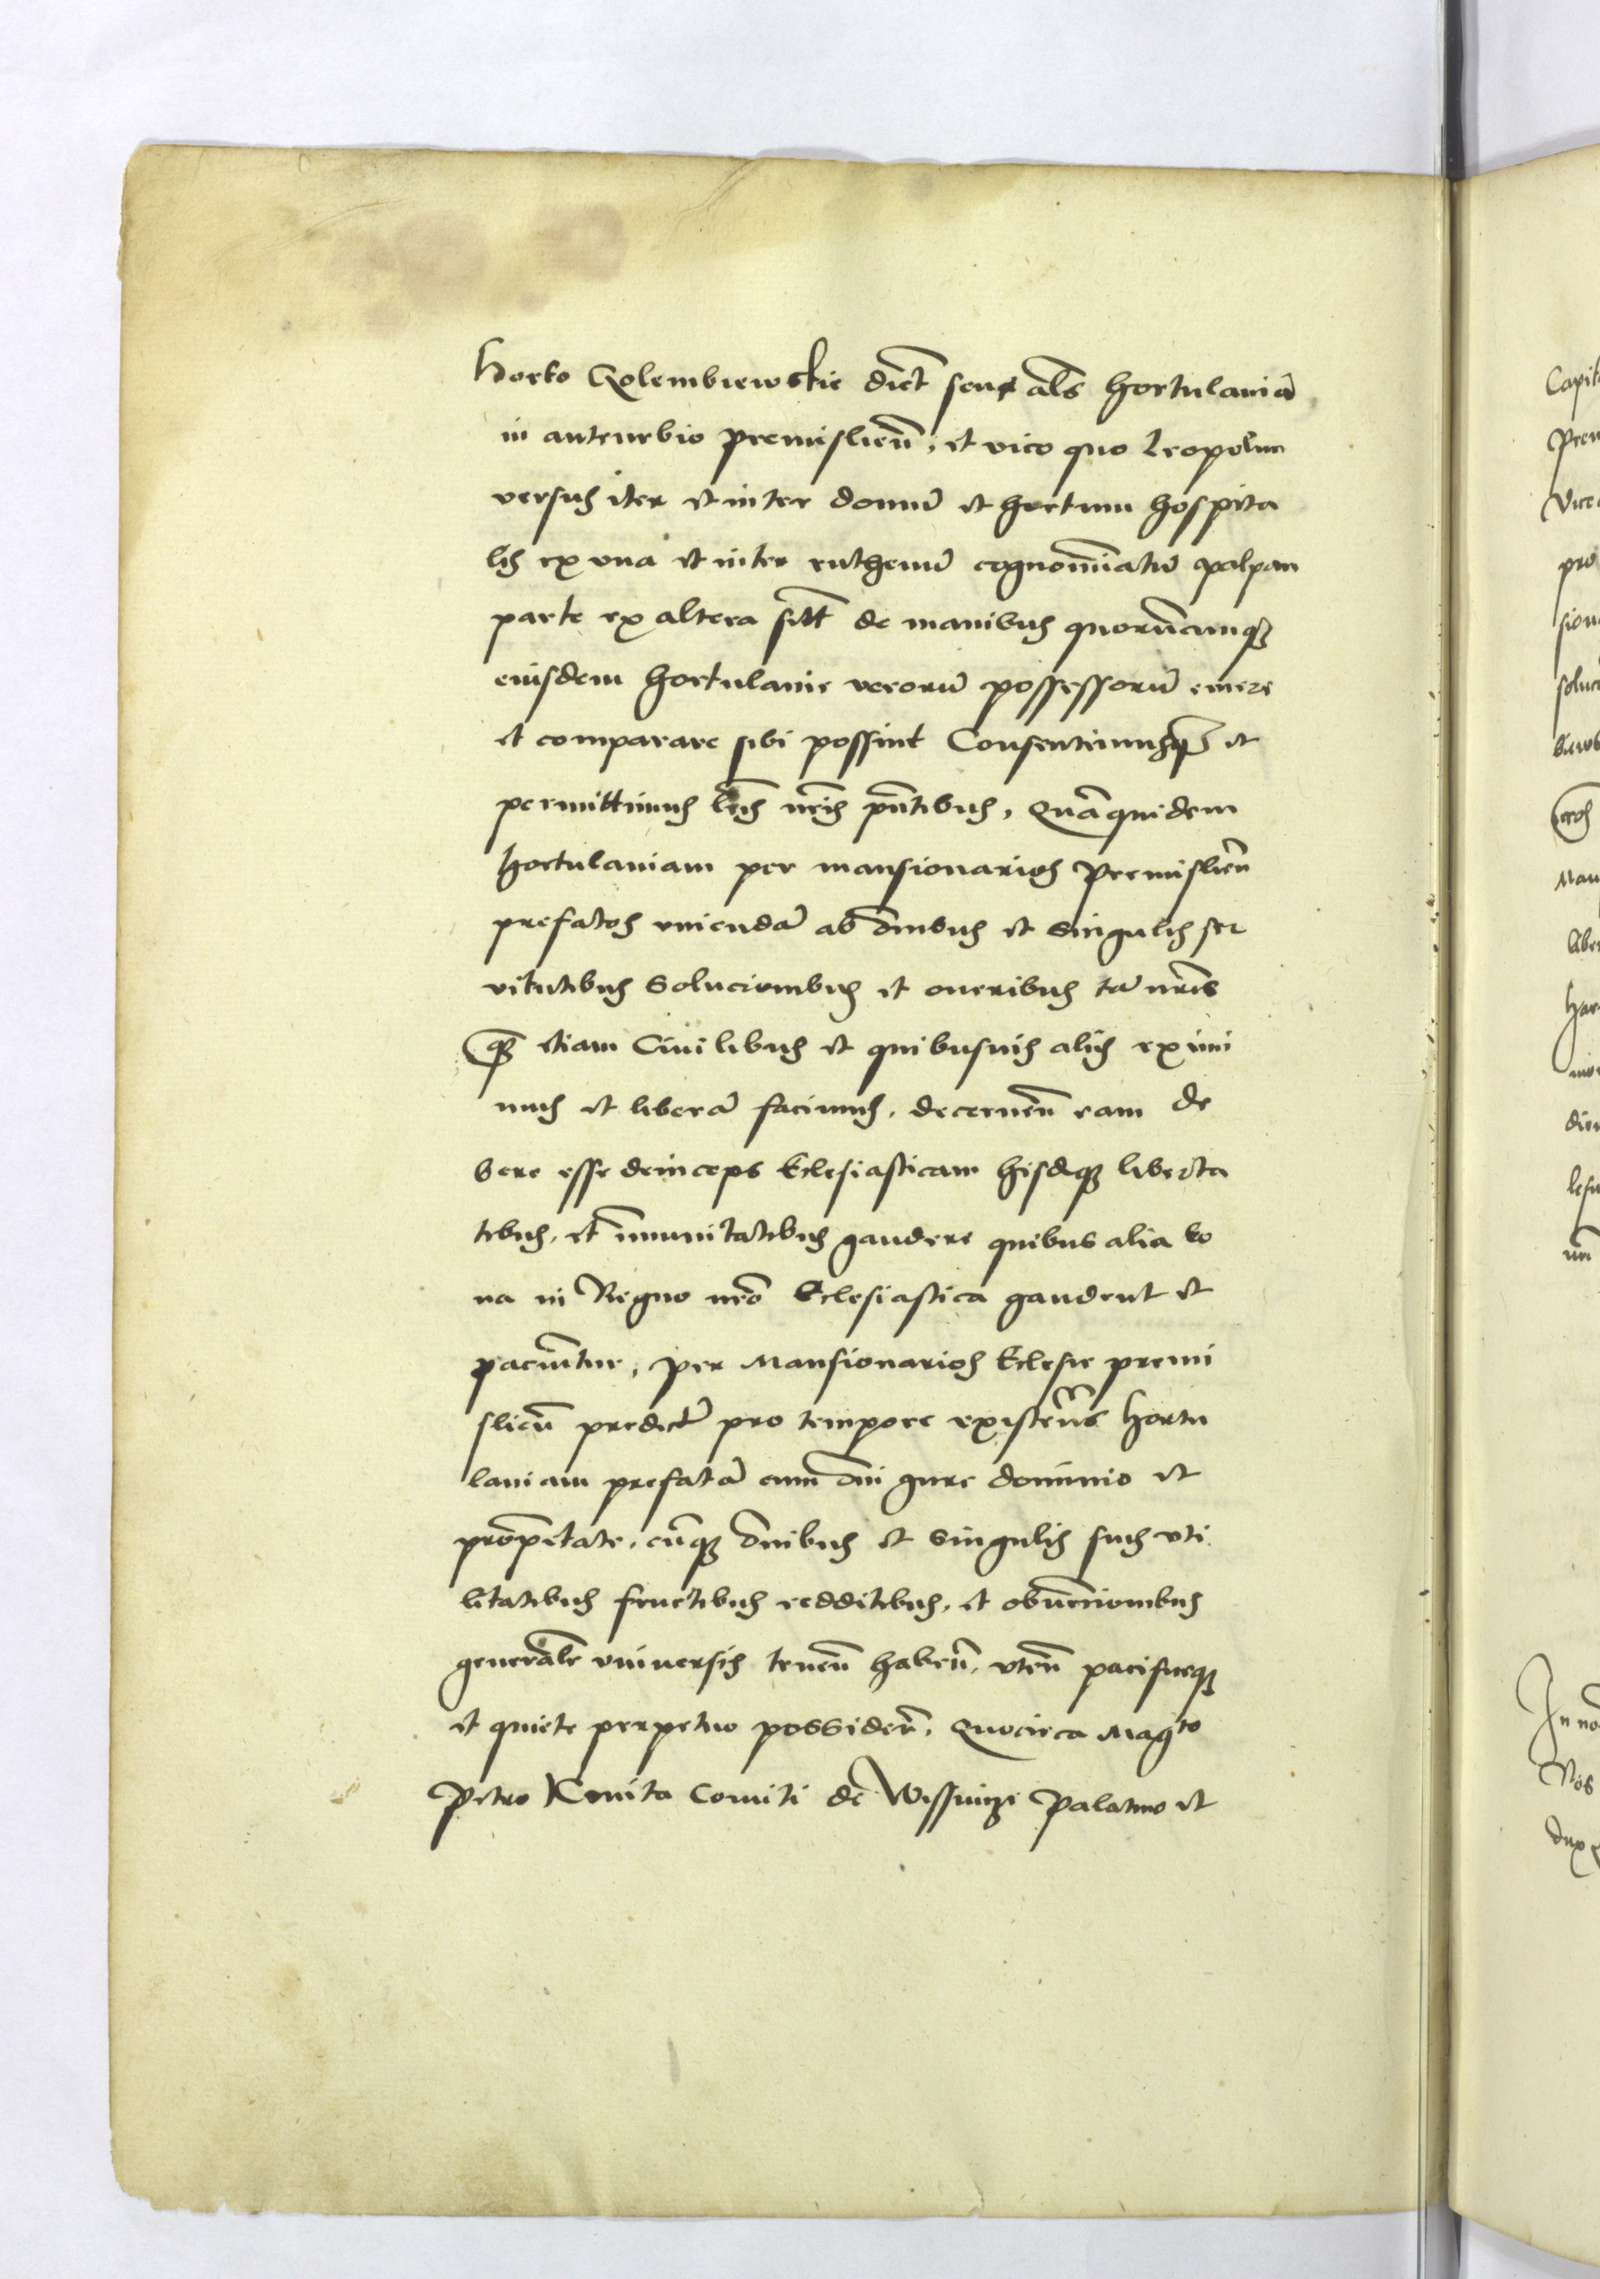 Horto Golembiewskie dict̄ seu al̄s Hortulaniā
in anteurbio premislien̄, et vico quo Leopolim
versus iter et inter domū et hortum hospita
lis ex una et inter ruthenū cognoīatū palpan
parte ex altera sitt̄ de manibus quorūcumqꝫ
eiusdem hortulanie verorū possessorū emere
et comparare sibi possint Consentimusqꝫ et
permittimus l̄ris nr̄is pn̄tibus, Quāquidem
hortulaniam per mansionarios Premislien̄
prefatos emendā ab oībus et singulis ser
vitutibus Solucionibus et oneribus tā nr̄is
qꝫ etiam Civilibus et quibusvis aliis eximi
mus et liberā facimus, decernen̄ eam de
bere esse deinceps Eclesiasticam hisdēqꝫ liberta
tibus, et im̄unitatibus gaudere quibus alia bo
na in Regno nr̄o Eclesiastica gaudent et
pociuntur, per Mansionarios Eclesie premi
slien̄ predict̄ pro tempore existen̄tes hortu
laniam prefatā cum om̄i iure dominio et
proprietate, cūqꝫ om̄ibus et singulis suis uti
litatibus fructibus redditibus, et obvencionibus
generalr̄ universis tenen̄ haben̄, uten̄ pacificeqꝫ
et quiete perpetuo possiden̄, Quocirca Mag͡co
Petro Kmita Comiti de Wissnicze Palatino et
Capit
Prem
Vice
pro
sion
soluc
biews
Man
liber
Har
dict
In no
Nos
dux